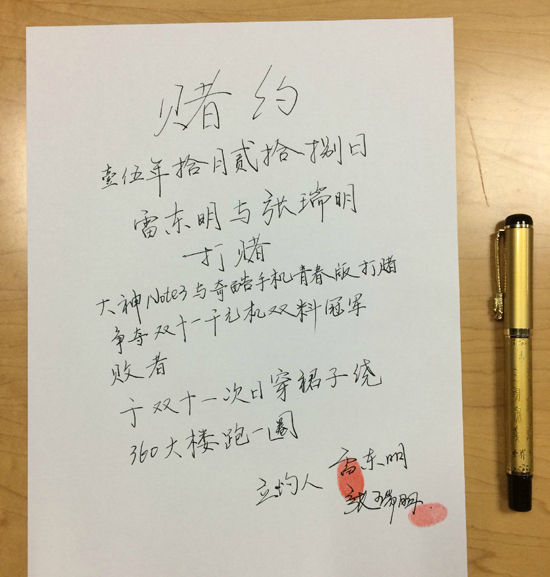 赌约
壹伍年拾月贰拾捌日
雷东明与张瑞明
打赌
大神Note3与奇酷手机青春版打赌
争夺双十一千元机双料冠军
败者
于双十一次日穿裙子绕
360大楼跑一圈
立约人 雷东明
张瑞明